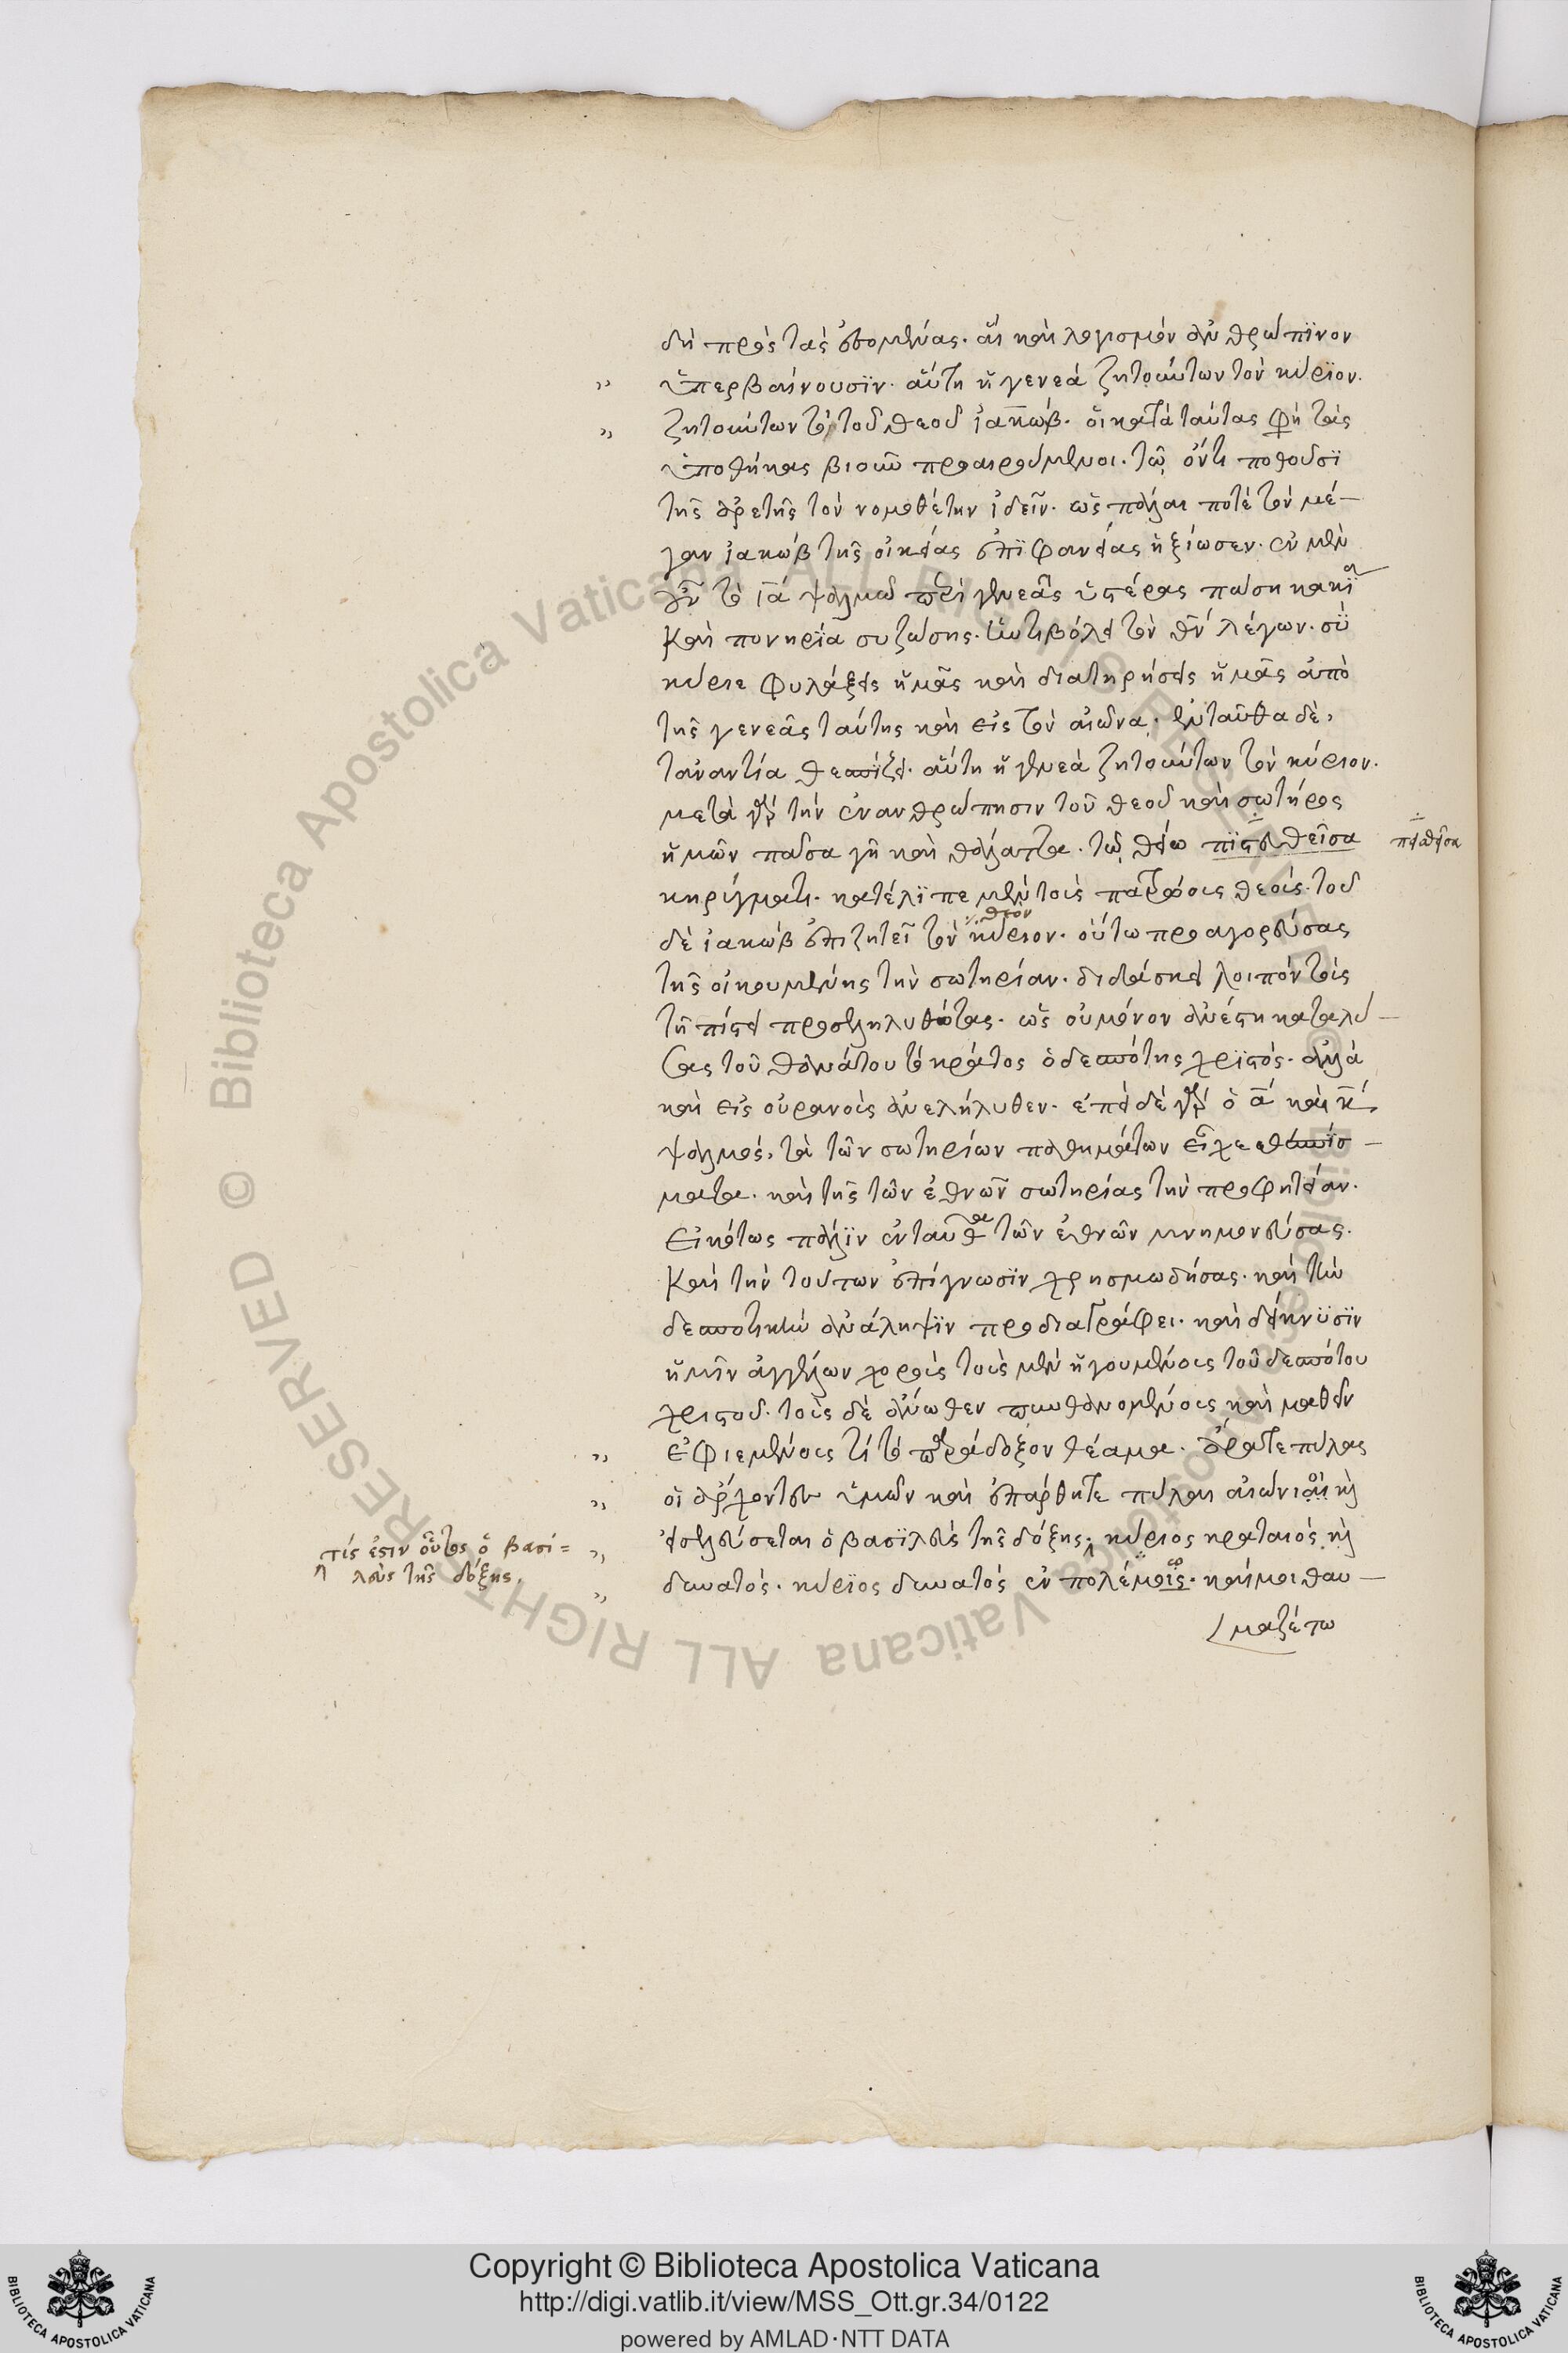 δὴ πρὸς τὰς ἑπομένας. αἳ καὶ λογισμὸν ἀνθρώπϊνον
„ ὑπερβαίνουσϊν. αὕτη ἡ γενεὰ ζητούντων τὸν κύρϊον.
„ ζητούντων τὸ τοῦ θεοῦ ἰακώβ. οἱ κατὰ ταύτας φη τὰς
ὑποθήκας βιοῦν προαιρούμενοι. τῷ ὄντι ποθοῦσϊ
τῆς ἀρετῆς τὸν νομοθέτην ἰδεῖν. ὡς πάλαι ποτὲ τὸν μέ-
γαν ἰακὼβ τῆς οἰκείας ἐπϊφανείας ἠξίωσεν. ἐν μὲν
οὖν τῷ ια ψαλμῷ περὶ γενεᾶς ὑστέρας πάση κακία
καὶ πονηρΐα συζώσης. ἀντιβόλει τὸν θν λέγων. σὺ
κύριε φυλάξεις ἡμᾶς καὶ διατηρήσεις ἡμᾶς ἀπὸ
τῆς γενεᾶς ταύτης καὶ εἰς τὸν αἰῶνα. ἐνταῦθα δὲ,
τἀναντία θεσπίζει. αὕτη ἡ γενεὰ ζητούντων τὸν κύριον.
μετὰ γὰρ τὴν ἐνανθρώπησιν τοῦ θεοῦ καὶ σωτῆρος
ἡμῶν πᾶσα γῆ καὶ θάλαττα. τῷ θείω πϊστευθεῖσα πεισθεῖσα
κηρύγματι. κατέλϊπε μὲν τοὺς πατρώους θεούς. τοῦ
δὲ ἰακὼβ ἐπιζητεῖ τὸν κύριον. θεὸν οὕτω προαγορεύσας
τῆς οἰκουμένης τὴν σωτηρίαν. διδάσκει λοιπὸν τοὺς
τῇ πίστει προσεληλυθότας. ὡς οὐ μόνον ἀνέστη καταλύ-
σας τοῦ θανάτου τὸ κράτος ὁ δεσπότης χρϊστός. ἀλλὰ
καὶ εἰς οὐρανοὺς ἀνελήλυθεν. ἐπειδὲ γὰρ ὁ α καὶ κ
ψαλμός, τὰ τῶν σωτηρίων παθημάτων εἶχε θεσπίσ-
ματα. καὶ τῆς τῶν ἐθνῶν σωτηρίας τὴν προφητείαν.
εἰκότως πάλϊν ἐνταῦθα τῶν ἐθνῶν μνημονεύσας.
καὶ τὴν τούτων ἐπίγνωσϊν χρησμωδήσας. καὶ τὴν
δεσποτικὴν ἀνάληψϊν προδιαγράφει. καὶ δείκνϋσϊν
ἡμῖν ἀγγέλων χοροὺς τοὺς μὲν ἡγουμένους τοῦ δεσπότου
χριστοῦ. τοὺς δὲ ἄνωθεν πυνθανομένους καὶ μαθεῖν
„ ἐφιεμένους τί τὸ παράδοξον θέαμα. ἄρατε πύλας
„ οἱ ἄρχοντες ὑμῶν καὶ ἐπάρθητε πύλαι αἰώνιοι κὶ
„ εἰσελεύσεται ὁ βασϊλεὺς τῆς δόξης. κύριος κραταιὸς κὶ
„ δυνατός. κύρϊος δυνατὸς ἐν πολέμοις. καί μοι θαυ-
μαζέτω
τίς ἐστιν οὗτος ὁ βασι=
λεὺς τῆς δόξης.
Copyright © Biblioteca Apostolica Vaticana
http://digi.vatlib.it/view/MSS_Ott.gr.34/0122
powered by AMLAD·NTT DATA
BIBLIOTECA APOSTOLICA VATICANA
BIBLIOTECA APOSTOLICA VATICANA
© Biblioteca Apostolica Vaticana ALL RIGHTS RESERVED
© Biblioteca Apostolica Vaticana ALL RIGHTS RESERVED